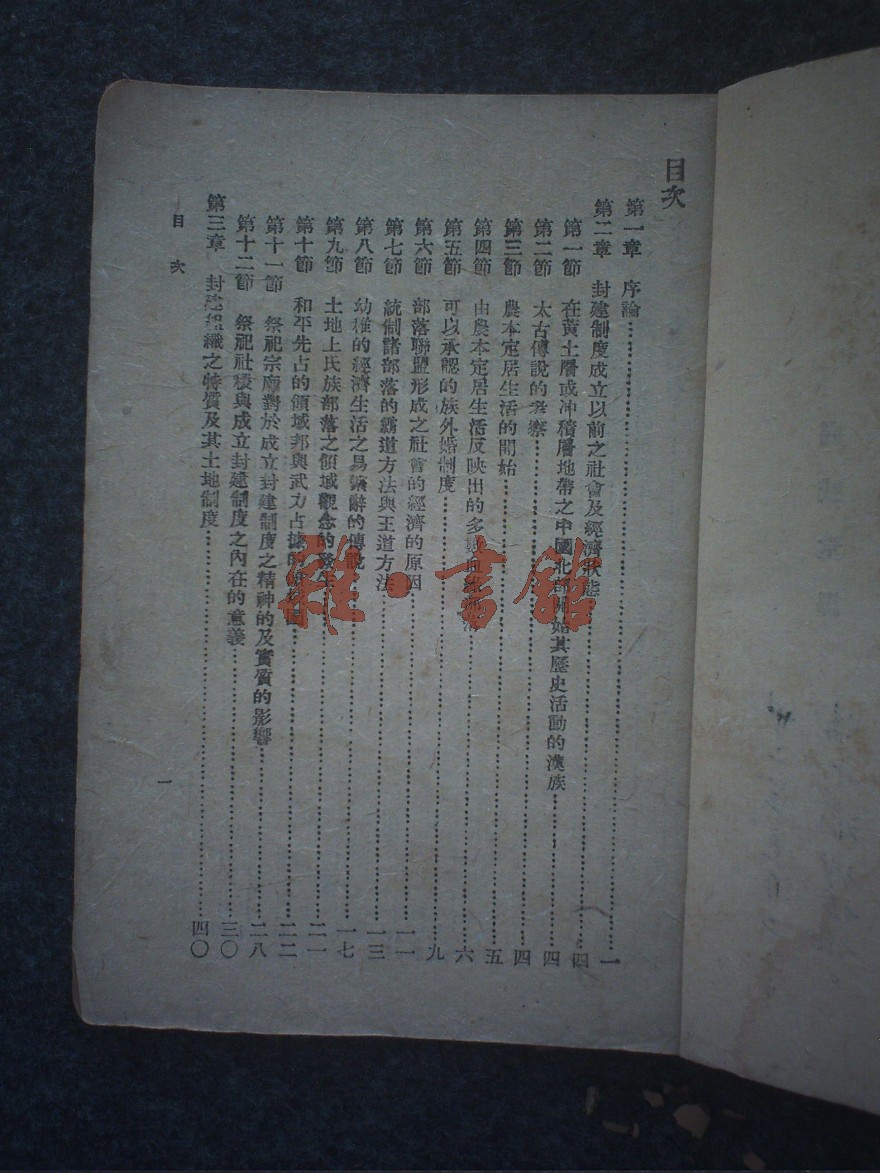 目次
第一章 序論 一
第二章 封建制度成立以前之社會及經濟狀態 四
第一節 在黃土層或冲積層地帶之中國北部開始其歷史活動的漢族 四
第二節 太古傳說的考察 四
第三節 農本定居生活的開始 五
第四節 由農本定居生活反映出的多 六
第五節 可以承認的族外婚制度 九
第六節 部落聯盟形成之社會的經濟的原因 一一
第七節 統制諸部落的霸道方法與王道方法 一三
第八節 幼稚的經濟生活之易 辭的傳說 一七
第九節 土地上氏族部落之領域觀念的發生 二一
第十節 和平先占的領域邦與武力占據的 國 二二
第十一節 祭祀宗廟對於成立封建制度之精神的及實質的影響 二八
第十二節 祭祀社稷與成立封建制度之內在的意義 三〇
第三章 封建組織之特質及其土地制度 四〇
目次
一
雜·書館